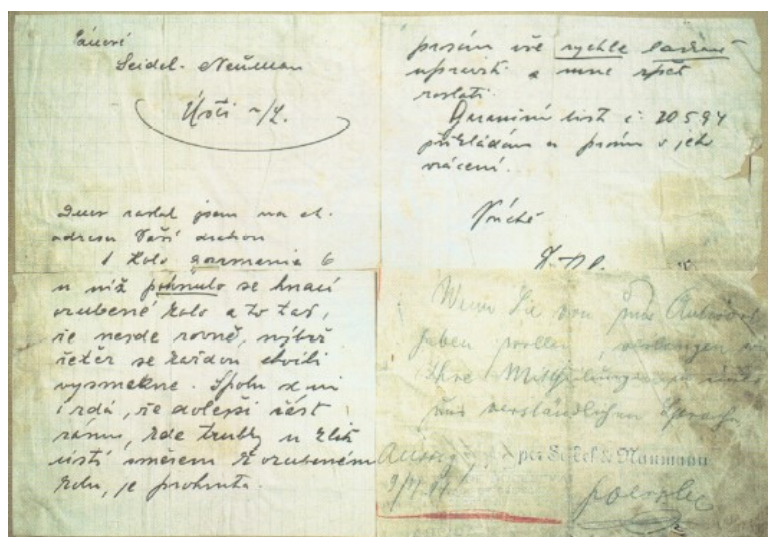 Pánové
Seidel - Neuman
Ústí n/L.
Dnes zaslal jsem na ct.
adresu Vaší drahou
1 Kolo germania 6
u níž pohnulo se hnací
ozubené kolo a to tak,
že nejde rovně, nýbrž
řetěz se každou chvíli
vysmekne. Spolu se mi
i zdá, že dolejší část
rámu, kde trubky u klik
ústí směrem k ozubeném
kolu, je prohnuta.
prosím vše rychle laskavě
upraviti a mne zpět
zaslati.
Garanční list č. 20594
přikládám a prosím o jeho
vrácení.
V úctě
Wenn Sie von uns Antwort
haben wollen, verlangen wir
Ihre Mitteilungen in einer
uns verständlichen Sprache.
Aussig,
per Seidel & Naumann